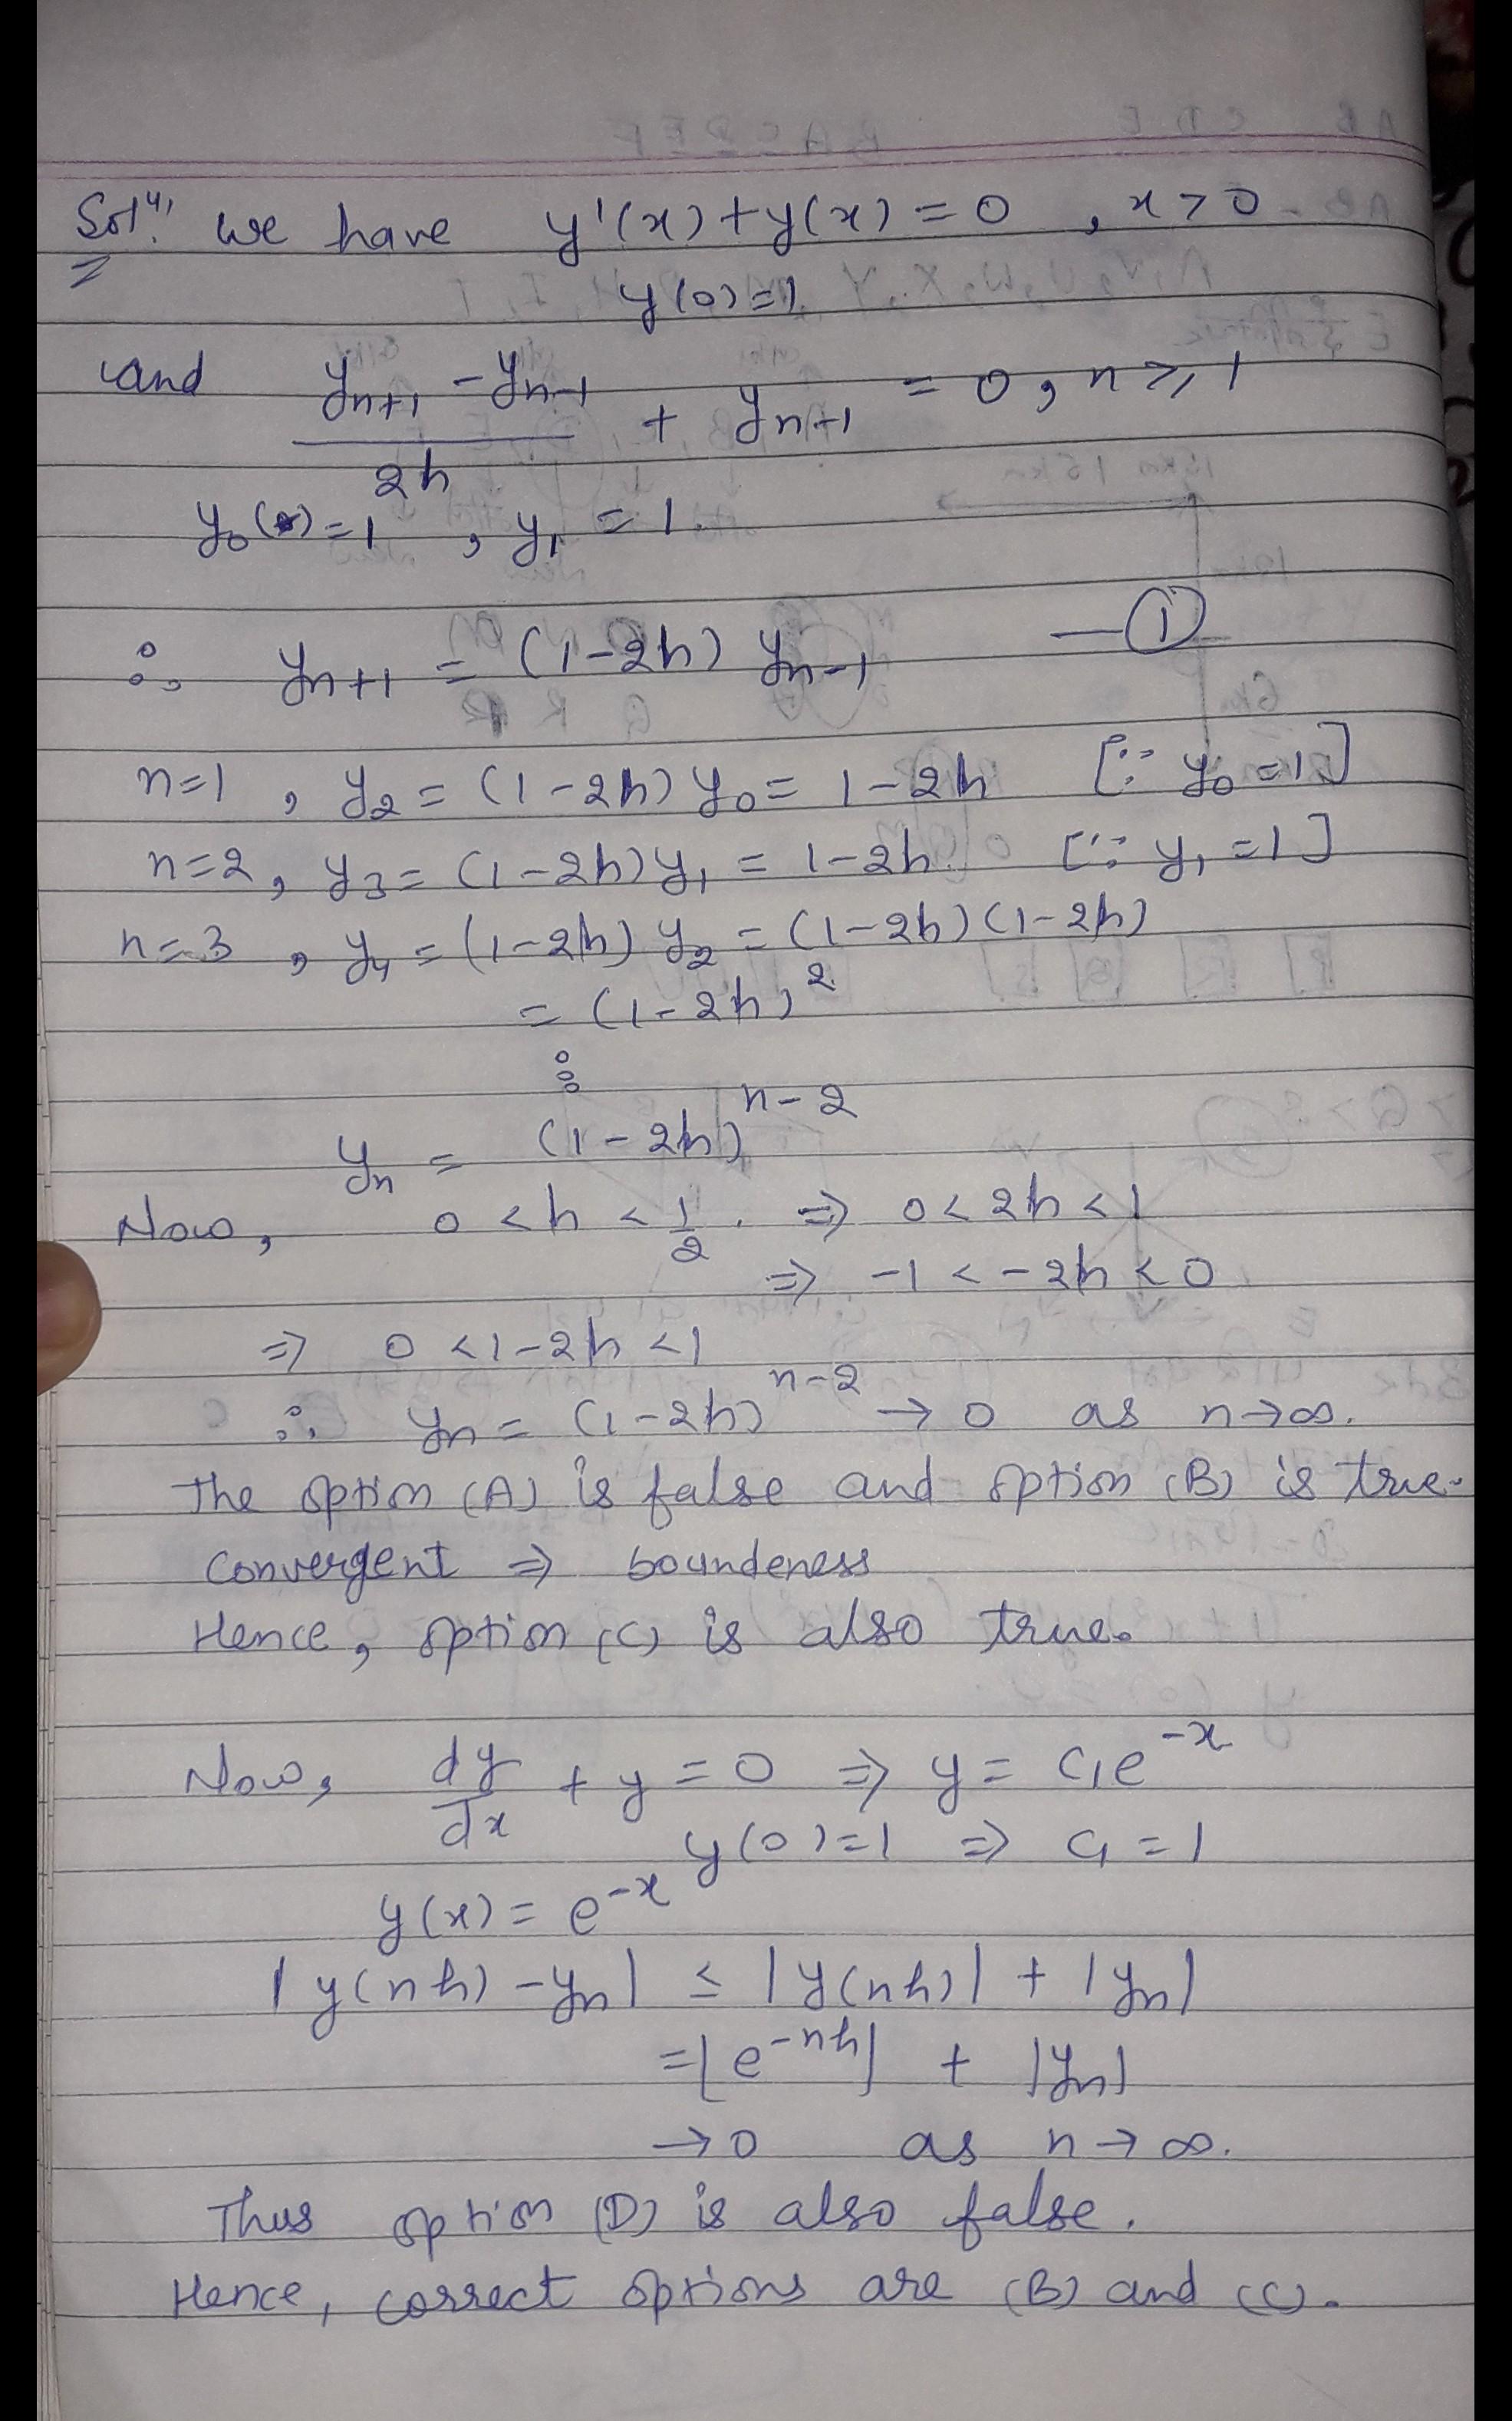 Solⁿ. we have y'(x)+y(x)=0 , x>0
y(0)=1
and (y_{n+1} - y_{n-1})/2h + y_{n+1} = 0, n≥1
y_0(x)=1 , y_1 = 1.
∴ y_{n+1} = (1-2h) y_{n-1} —①
n=1 , y_2 = (1-2h) y_0 = 1-2h [∵ y_0=1]
n=2, y_3 = (1-2h) y_1 = 1-2h [∵ y_1=1]
n=3 , y_4 = (1-2h) y_2 = (1-2h)(1-2h)
= (1-2h)^2
⋮
y_n = (1-2h)^{n-2}
Now, 0<h<1/2. ⇒ 0<2h<1
⇒ -1<-2h<0
⇒ 0<1-2h<1
∴ y_n = (1-2h)^{n-2} → 0 as n→∞.
The option (A) is false and option (B) is true.
Convergent ⇒ boundeness
Hence, option (C) is also true.
Now, dy/dx + y = 0 ⇒ y = c_1e^{-x}
y(0)=1 ⇒ c_1=1
y(x) = e^{-x}
|y(nh) - y_n| ≤ |y(nh)| + |y_n|
= |e^{-nh}| + |y_n|
→0 as n→∞.
Thus option (D) is also false.
Hence, correct options are (B) and (C).